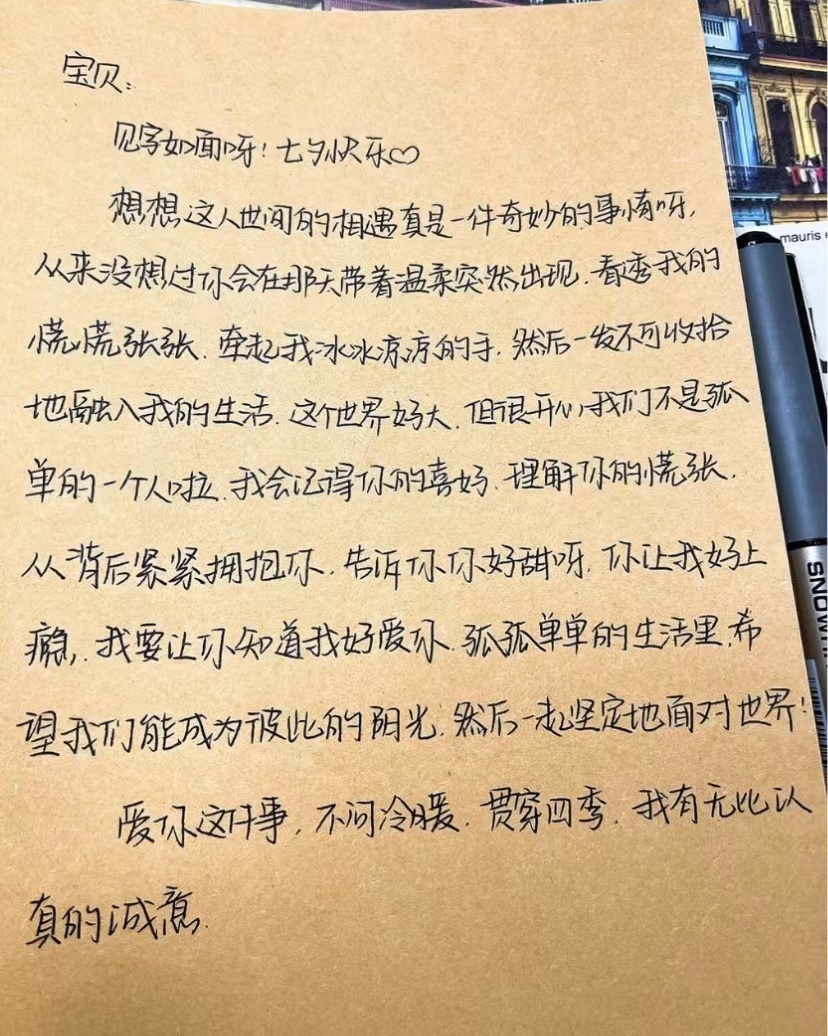 宝贝:
见字如面呀!七夕快乐♡
想想这人世间的相遇真是一件奇妙的事情呀,
从来没想过你会在那天带着温柔突然出现.看透我的
慌慌张张.牵起我冰冰凉凉的手.然后一发不可收拾
地融入我的生活.这个世界好大.但很开心我们不是孤
单的一个人啦.我会记得你的喜好.理解你的慌张.
从背后紧紧拥抱你.告诉你你好甜呀.你让我好上
瘾.我要让你知道我好爱你.孤孤单单的生活里.希
望我们能成为彼此的阳光.然后一起坚定地面对世界!
爱你这件事.不问冷暖.贯穿四季.我有无比认
真的诚意.
mauris e
SNOWH